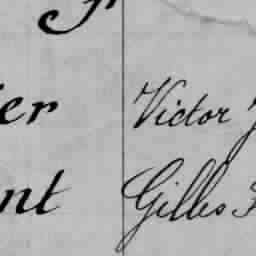 er Victor
nt Gilles